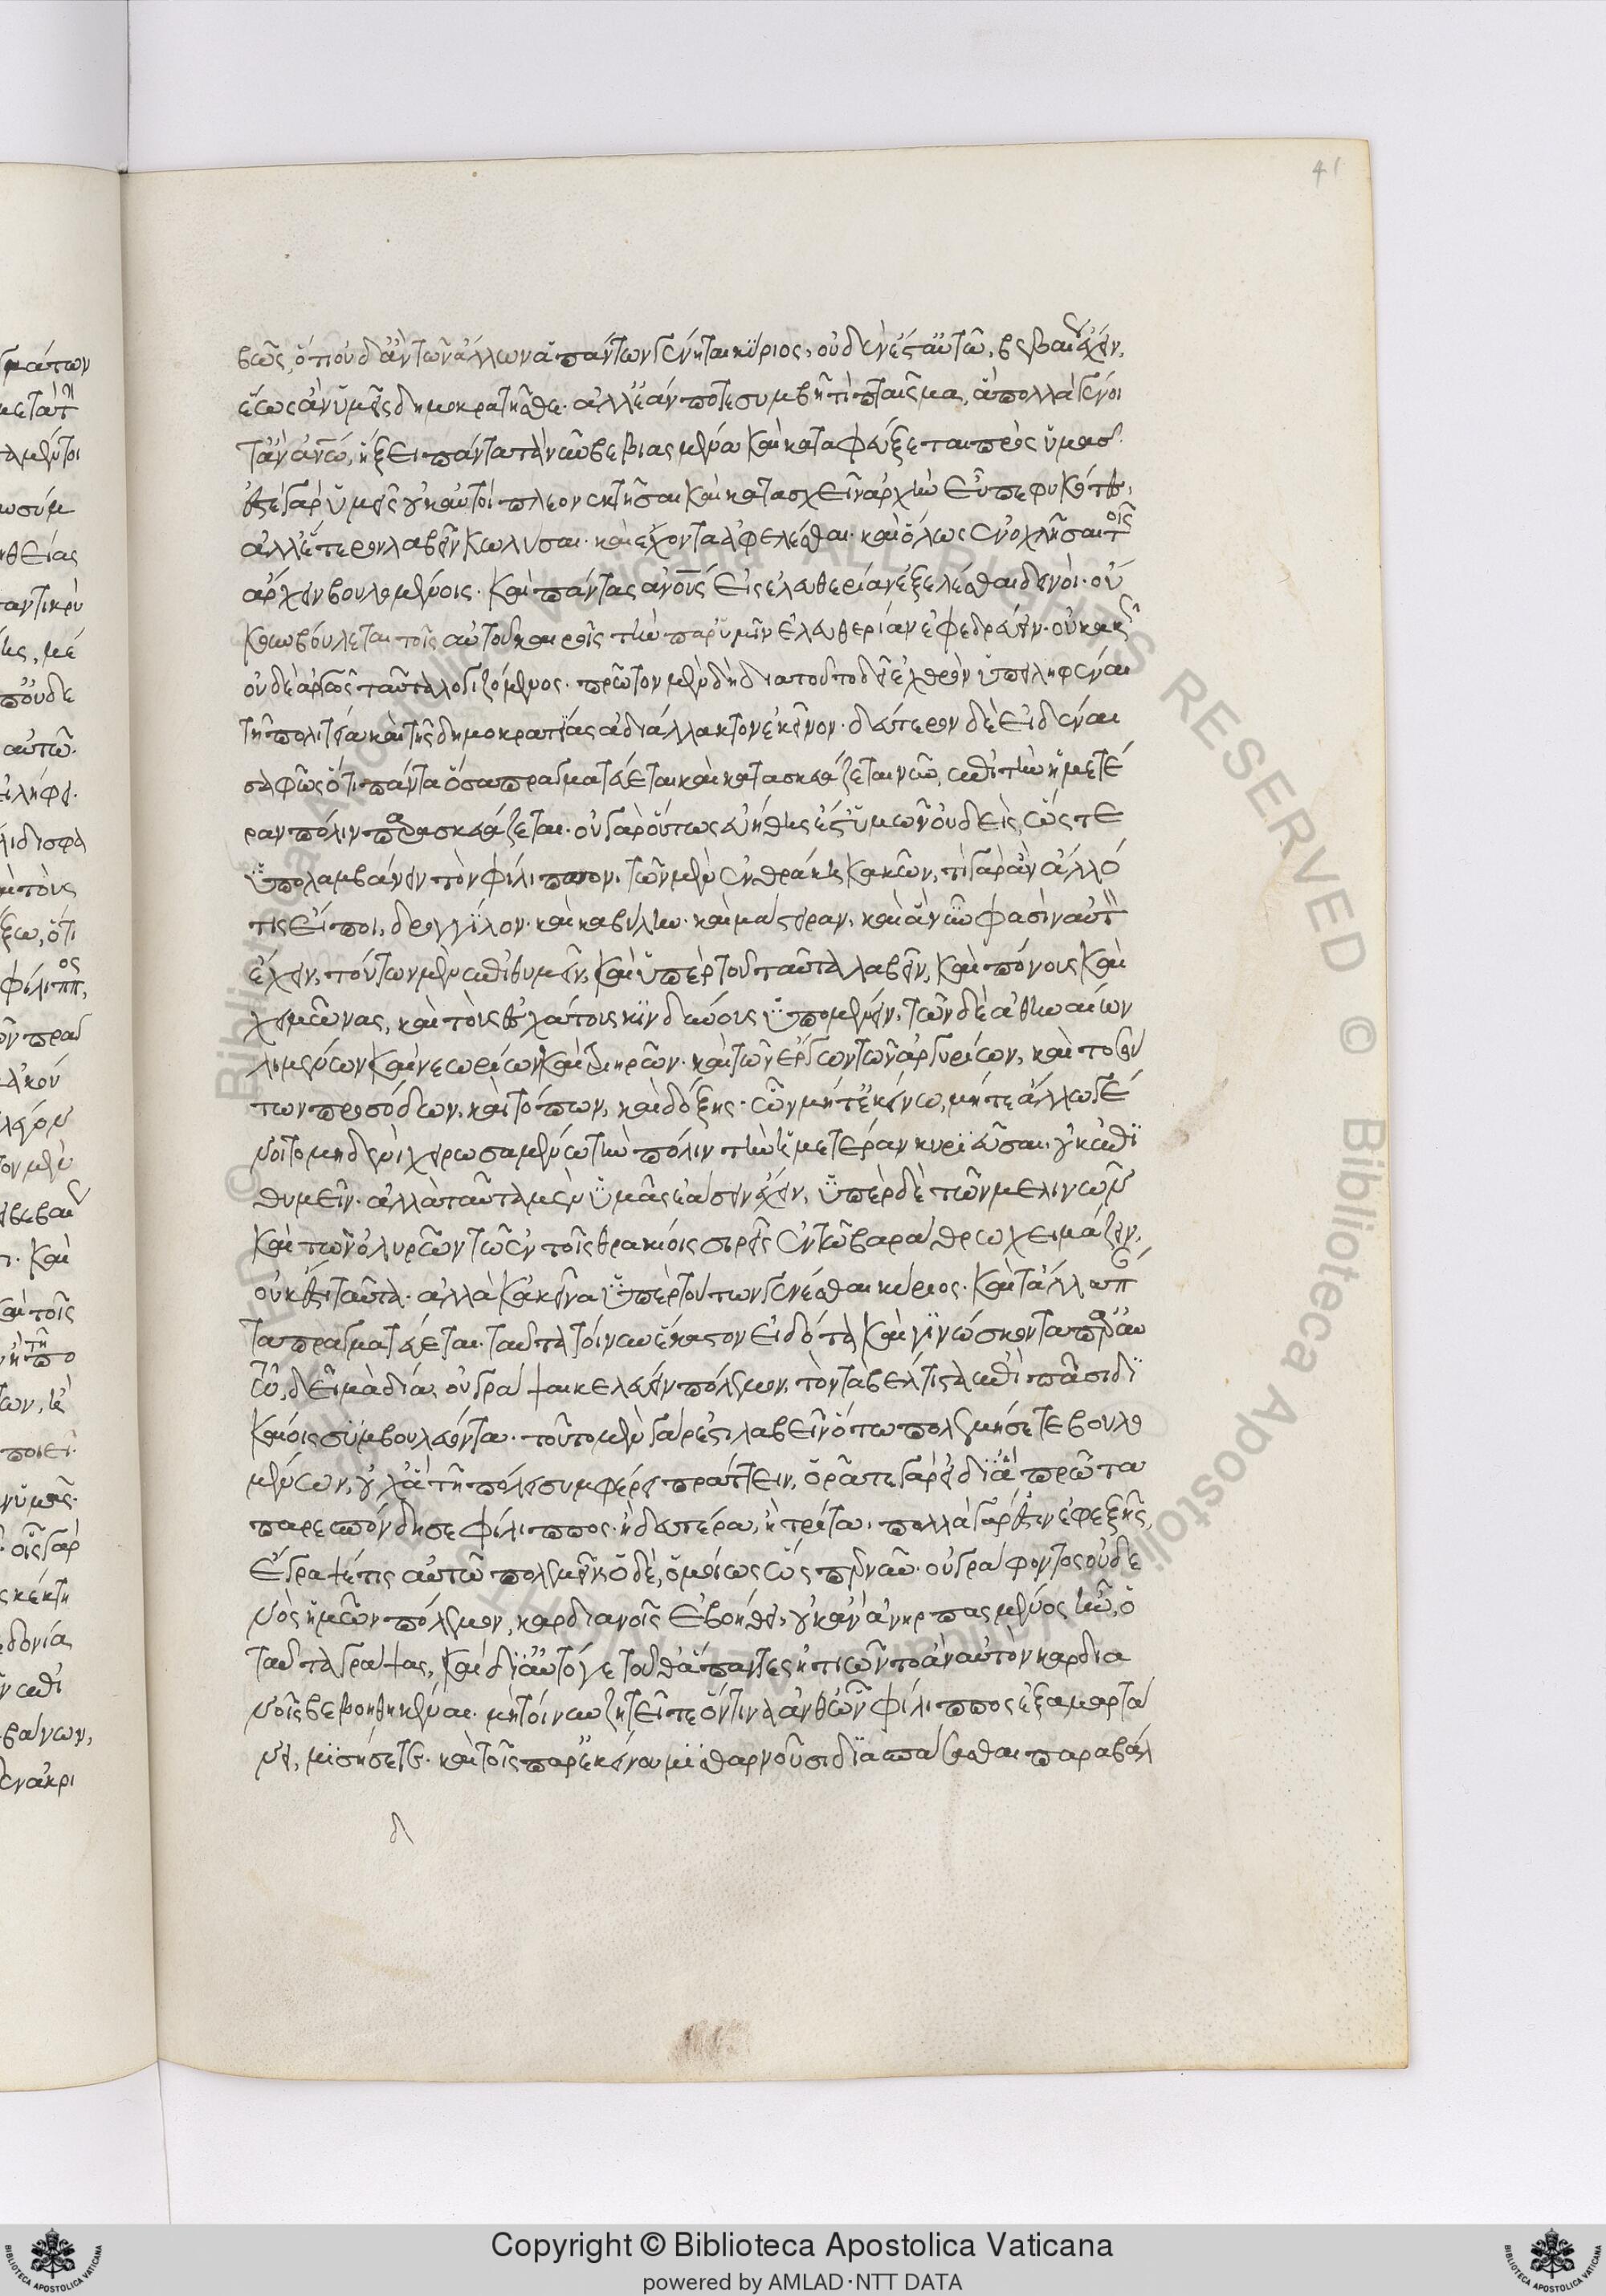 41
βῶς, ὅτι οὐδ' ἂν τῶν ἄλλων ἁπάντων γένηται κύριος, οὐδὲν ἔστ' αὐτῶ βεβαίως ἔχειν,
ἕως ἂν ὑμεῖς δημοκρατῆσθε· ἀλλ' ἐάν ποτε συμβῆ τὶ πταῖσμα, ἃ πολλὰ γένοι
τ' ἂν ἀνω, ἥξει πάντα τὰ νῦν βεβιασμένα καὶ καταφεύξεται πρὸς ὑμᾶσ·
ἐστὲ γὰρ ὑμεῖς οὐκ αὐτοὶ πλεονεκτῆσαι καὶ κατασχεῖν ἀρχὴν εὖ πεφυκότες,
ἀλλ' ἕτερον λαβεῖν κωλῦσαι· καὶ ἔχοντα ἀφελέσθαι· καὶ ὅλως ἐνοχλῆσαι τοῖς
ἄρχειν βουλομένοις· καὶ πάντας ἀνους εἰς ἐλευθερίαν ἐξελέσθαι δεινοί· οὔ
κουν βούλεται τοῖς αὑτοῦ καιροῖς τὴν παρ' ὑμῶν ἐλευθερίαν ἐφεδρεύειν· οὐ κακῶς
οὐδὲ ἀργῶς ταῦτα λογιζόμενος· πρῶτον μὲν δὴ διὰ τοῦτο δεῖ ἐχθρὸν ὑπειληφέναι
τῆς πολιτείας καὶ τῆς δημοκρατίας ἀδιάλλακτον ἐκεῖνον· δεύτερον δὲ εἰδέναι
σαφῶς ὅτι πάντα ὅσα πραγματεύεται καὶ κατασκευάζεται νῦν, ἐπὶ τὴν ἡμετέ
ραν πόλιν παρασκευάζεται· οὐ γὰρ οὕτως εὐήθης ἐστ' ὑμῶν οὐδεὶς, ὥστε
ὑπολαμβάνειν τὸν φίλιππον, τῶν μὲν ἐν θράκη κακῶν, τί γὰρ ἂν ἄλλό
τις εἴποι, δρογγίλον· καὶ καβύλην· καὶ μάστειραν, καὶ ἃ νῦν φασὶν αὐτὸν
ἔχειν, τούτων μὲν ἐπιθυμεῖν, καὶ ὑπὲρ τοῦ ταῦτα λαβεῖν, καὶ πόνους καὶ
χειμῶνας, καὶ τοὺς ἐσχάτους κινδύνους ὑπομένειν, τῶν δὲ ἀθηναίων
λιμένων καὶ νεωρίων καὶ τριηρῶν· καὶ τῶν ἔργων τῶν ἀργυρίων, καὶ τοσού
των προσόδων, καὶ τόπων, καὶ δόξης· ὧν μήτ' ἐκείνω, μήτε ἄλλω γέ
νοιτο μηδενὶ χειρωσαμένω τὴν πόλιν τὴν ἡμετέραν κυριεῦσαι, οὐκ ἐπι
θυμεῖν· ἀλλὰ ταῦτα μὲν ὑμᾶς ἐάσειν ἔχειν, ὑπὲρ δὲ τῶν μελινῶν
καὶ τῶν ὀλυρῶν τῶν ἐν τοῖς θρακίοις σιροῖς ἐν τῶ βαράθρω χειμάζειν,
οὐκ ἔστι ταῦτα· ἀλλὰ κἀκεῖνα ὑπὲρ τοῦ τούτων γενέσθαι κύριος· καὶ τἄλλα πάν
τα πραγματεύεται· ταῦτα τοίνυν ἕκαστον εἰδότα καὶ γινώσκοντα παρ' αὑ
τῶ, δεῖ μὰ δία, οὐ γράψαι κελεύειν πόλεμον, τὸν τὰ βέλτιστα ἐπὶ πᾶσι δι
καίοις συμβουλεύοντα· τοῦτο μὲν γάρ ἐστι λαβεῖν ὅτω πολεμήσετε βουλο
μένων, οὐχ ἃ τῆ πόλει συμφέρει πράττειν, ὁρᾶτε γὰρ εἰ δι' ἃ πρῶτα
παρεσπόνδησε φίλιππος· ἢ δεύτερα, ἢ τρίτα, πολλὰ γάρ ἐστιν ἐφεξῆς,
ἔγραψέ τις αὐτῶ πολεμεῖν, ὁ δὲ, ὁμοίως ὥσπερ νῦν· οὐ γράφοντος οὐδε
νὸς ἡμῶν πόλεμον, καρδιανοῖς ἐβοήθει, οὐκ ἂν ἀνηρπασμένος ἦν, ὁ
ταῦτα γράψας, καὶ δι' αὐτό γε τοῦθ' ἅπαντες ἠτιῶντο ἂν αὐτὸν καρδια
νοῖς βεβοηθηκέναι· μὴ τοίνυν ζητεῖτε ὅντινα ἀνθ' ὧν φίλιππος ἐξαμαρτά
νει, μισήσετε· καὶ τοῖς παρ' ἐκείνου μισθαρνοῦσι διασπάσασθαι παραβάλ
Copyright © Biblioteca Apostolica Vaticana
powered by AMLAD·NTT DATA